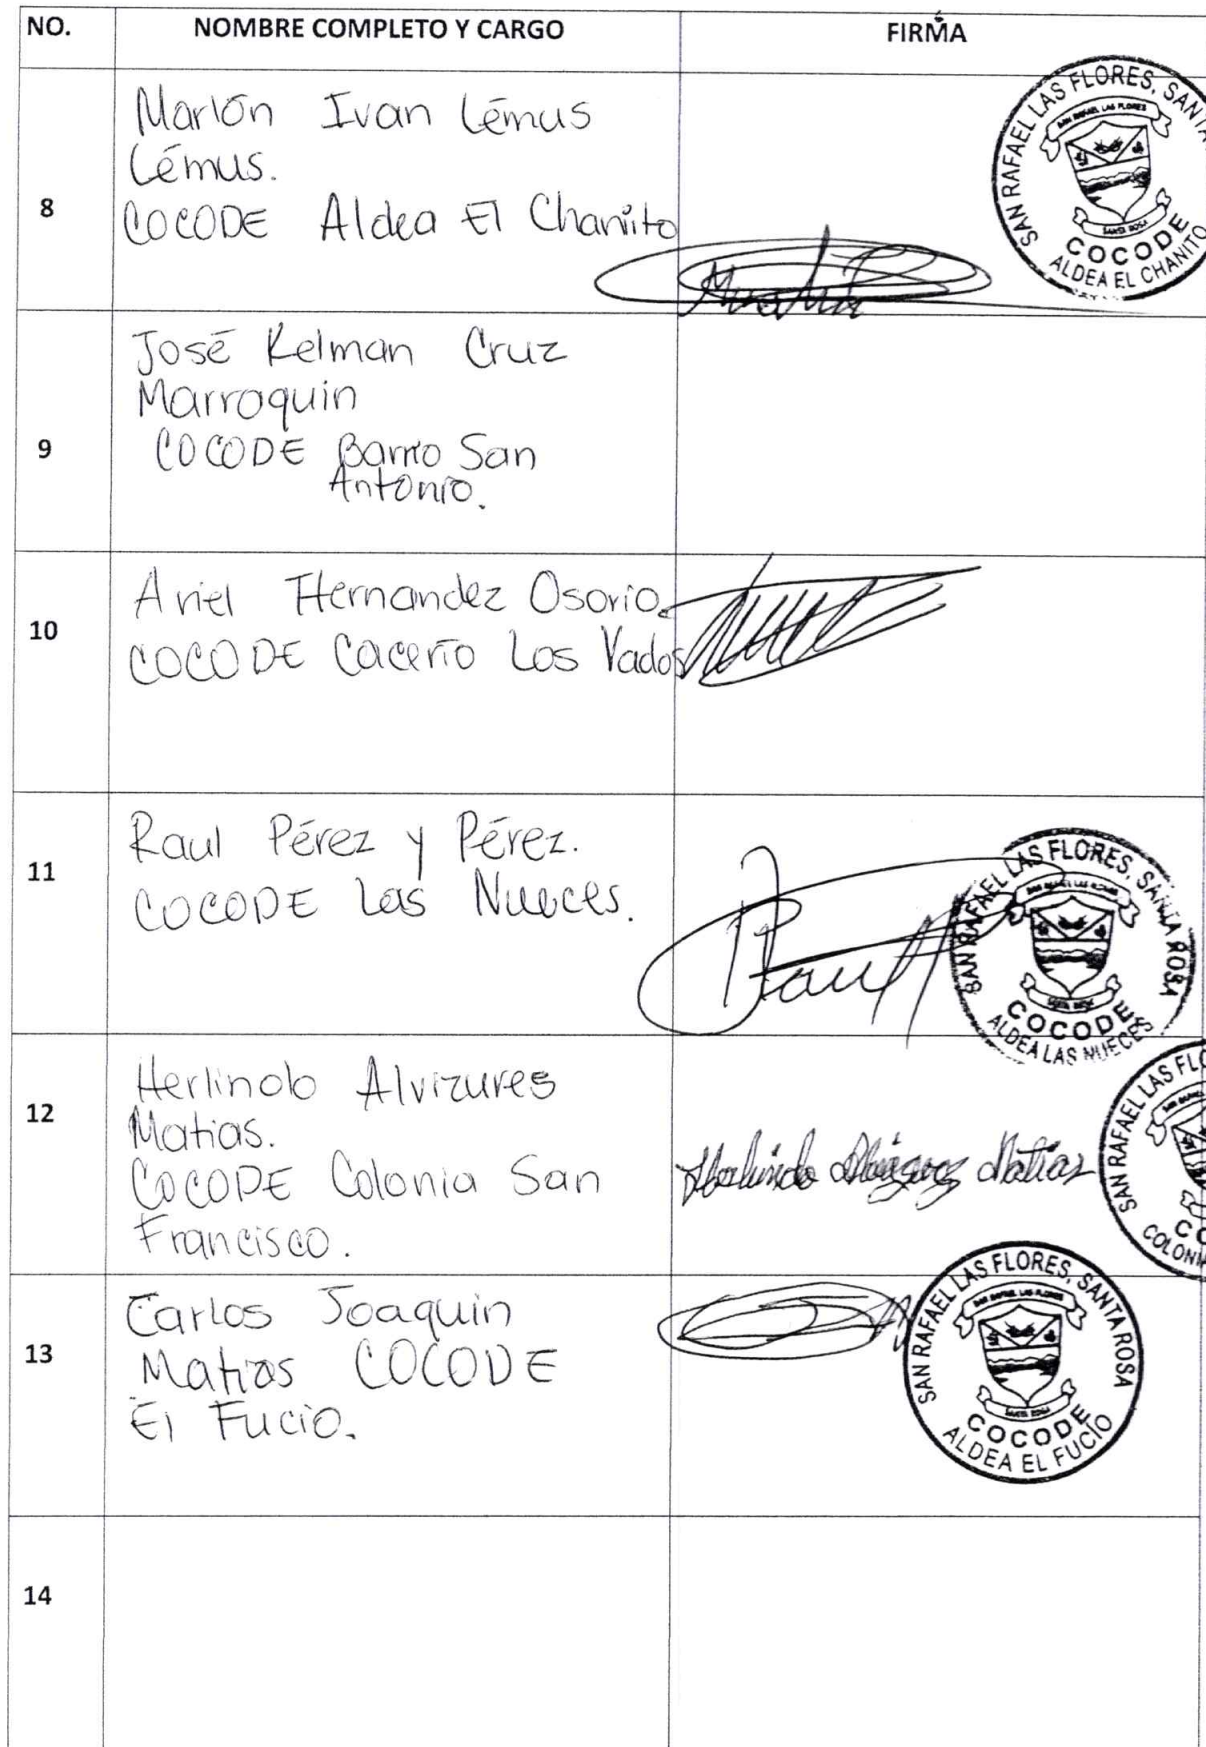 NO. NOMBRE COMPLETO Y CARGO FIRMA
8
Marlón Ivan Lémus
Lémus.
COCODE Aldea El Chanito
SAN RAFAEL LAS FLORES, SANTA
SAN RAFAEL LAS FLORES
SANTA ROSA
COCODE
ALDEA EL CHANITO
9
José Kelman Cruz
Marroquin
COCODE Barrio San
Antonio.
10
Ariel Hernandez Osorio.
COCODE Cacerío Los Vados
11
Raul Pérez y Pérez.
COCODE Las Nueces.
Raul
SAN RAFAEL LAS FLORES, SANTA ROSA
SAN RAFAEL LAS FLORES
SANTA ROSA
COCODE
ALDEA LAS NUECES
12
Herlindo Alvizures
Matias.
COCODE Colonia San
Francisco.
Herlindo Matias
SAN RAFAEL LAS FLO
CO
COLONI
13
Carlos Joaquin
Matias COCODE
El Fucio.
SAN RAFAEL LAS FLORES, SANTA ROSA
SAN RAFAEL LAS FLORES
SANTA ROSA
COCODE
ALDEA EL FUCIO
14